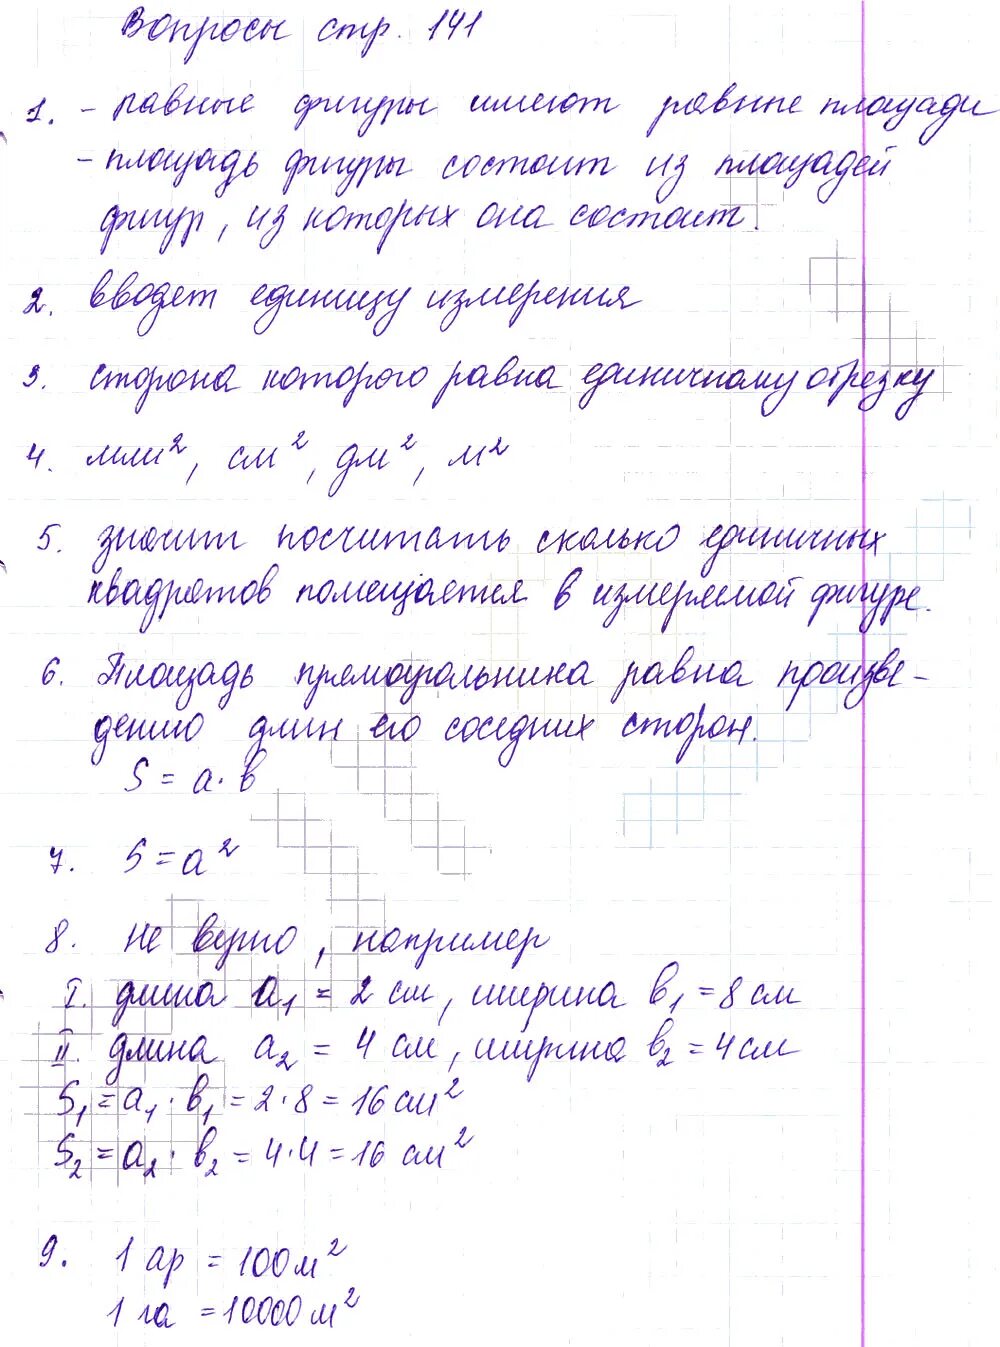 Вопросы стр. 141
1. - равные фигуры имеют равные площади
- площадь фигуры состоит из площадей
фигур, из которых она состоит.
2. вводят единицу измерения
3. сторона которого равна единичному отрезку
4. мм², см², дм², м²
5. значит посчитать сколько единичных
квадратов помещается в измеряемой фигуре.
6. Площадь прямоугольника равна произве-
дению длин его соседних сторон.
S = a · b
7. S = a²
8. не верно, например
I. длина a₁ = 2 см, ширина b₁ = 8 см
II. длина a₂ = 4 см, ширина b₂ = 4 см
S₁ = a₁ · b₁ = 2 · 8 = 16 см²
S₂ = a₂ · b₂ = 4 · 4 = 16 см²
9. 1 ар = 100 м²
1 га = 10000 м²